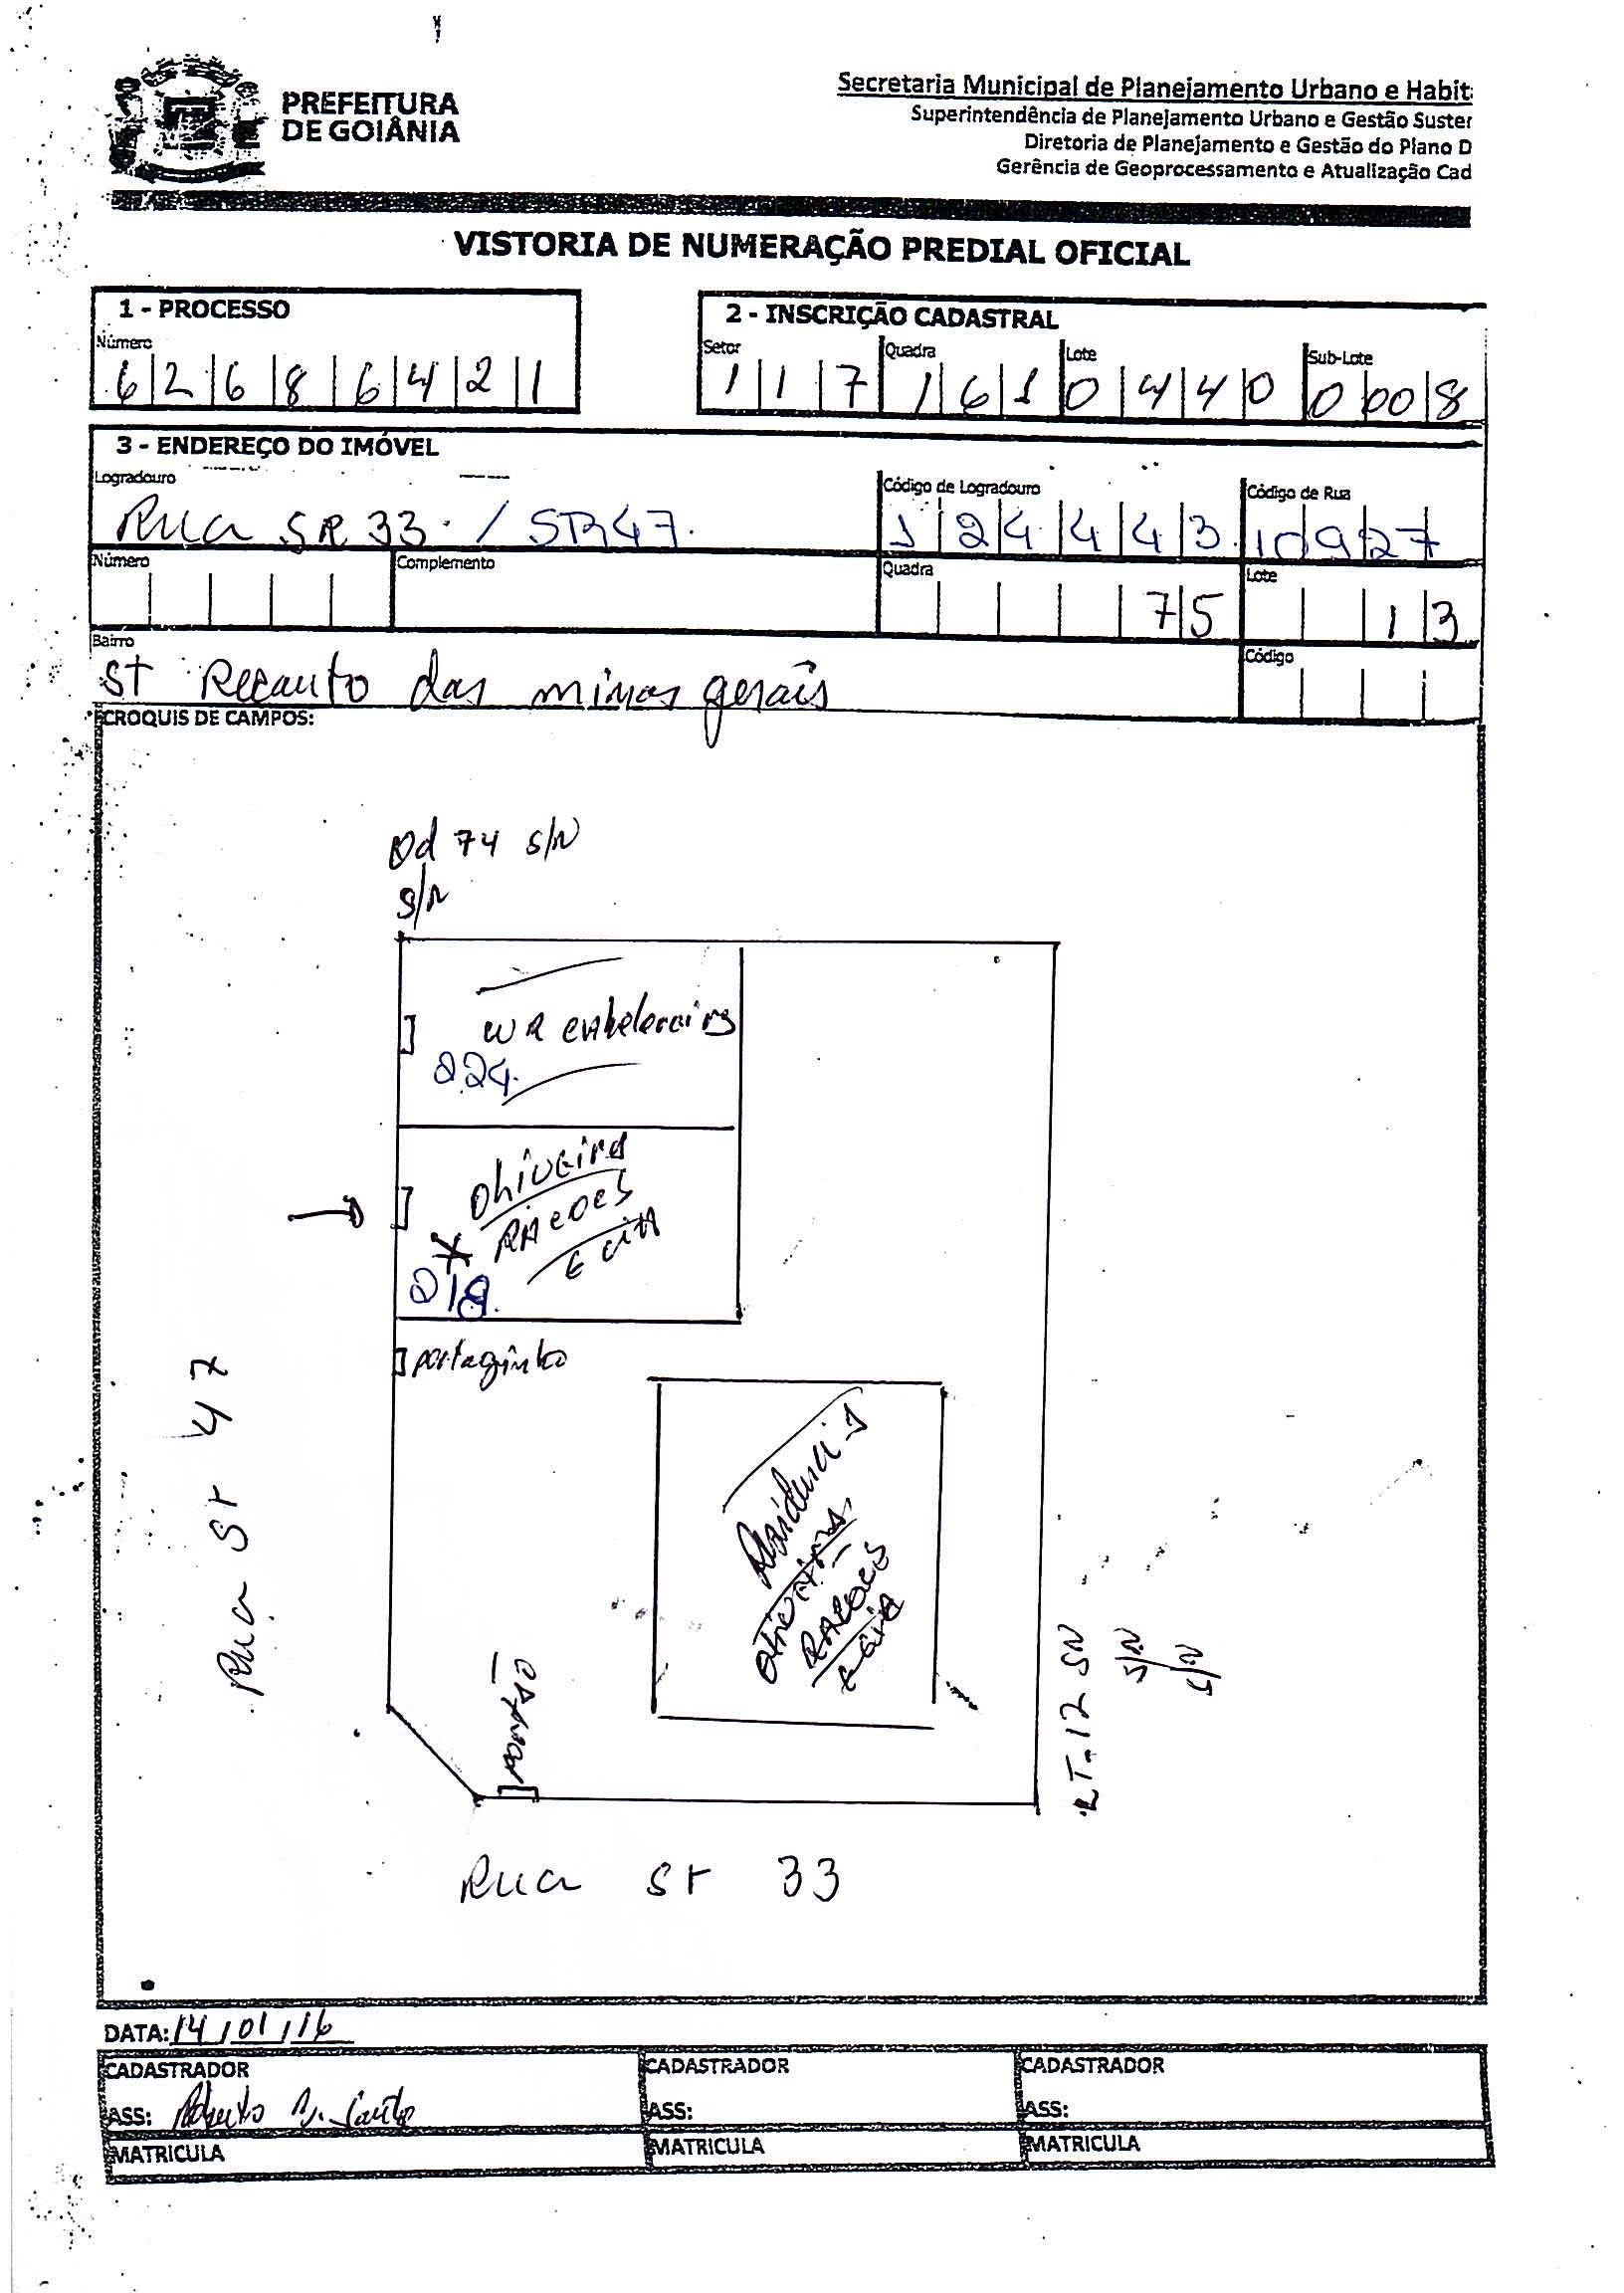 PREFEITURA
DE GOIÂNIA
Secretaria Municipal de Planejamento Urbano e Habit
Superintendência de Planejamento Urbano e Gestão Suster
Diretoria de Planejamento e Gestão do Plano D
Gerência de Geoprocessamento e Atualização Cad
VISTORIA DE NUMERAÇÃO PREDIAL OFICIAL
1 - PROCESSO
Número
6 2 6 8 6 4 2 1
2 - INSCRIÇÃO CADASTRAL
Setor Quadra Lote Sub-Lote
1 1 7 1 6 1 0 4 4 0 0 0 0 8
3 - ENDEREÇO DO IMÓVEL
Logradouro Código de Logradouro Código de Rua
Rua SR 33. / SR47. 1 2 4 4 4 3 1 0 9 2 7
Número Complemento Quadra Lote
7 5 1 3
Bairro Código
St Recanto das minas gerais
CROQUIS DE CAMPOS:
Qd 74 S/N
S/N
WR
224.
Oliveira
RAÇOES
E CIA
218.
portaginho
Rua Sr 47
Residencia
Oliveira
RAÇOES
E CIA
portão
LT-12 SN
S/N
S/N
Rua Sr 33
DATA: 14/01/16
CADASTRADOR CADASTRADOR CADASTRADOR
ASS: Roberto ASS: ASS:
MATRICULA MATRICULA MATRICULA